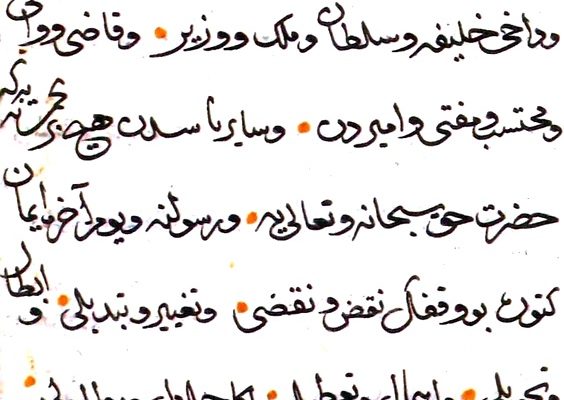 ودخی خلیفه و سلطان و ملك و وزیر • و قاضی و والی
و محتسب و مفتی و امیردن • و سایر ناسدن هیچ بر
حضرت حق سبحانه و تعالی یه • و رسولنه و یوم آخره ایمان
كتورن بو وقفك نقض و نقضی • و تغییر و تبدیلی • و ابطال
و تحویلی • و اهمال و تعطیلی •